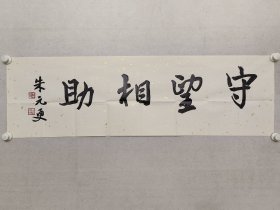 守望相助
朱元更